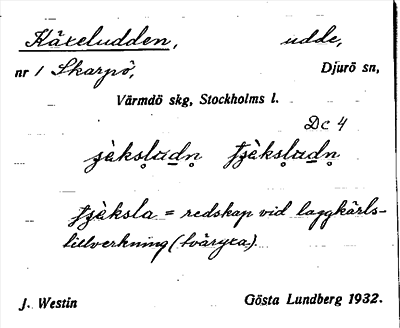 Käxeludden, udde,
nr 1 Skarpö, Djurö sn,
Värmdö skg, Stockholms l.
Dc 4
= redskap vid laggkärls-
tillverkning (tväryxa).
J. Westin Gösta Lundberg 1932.